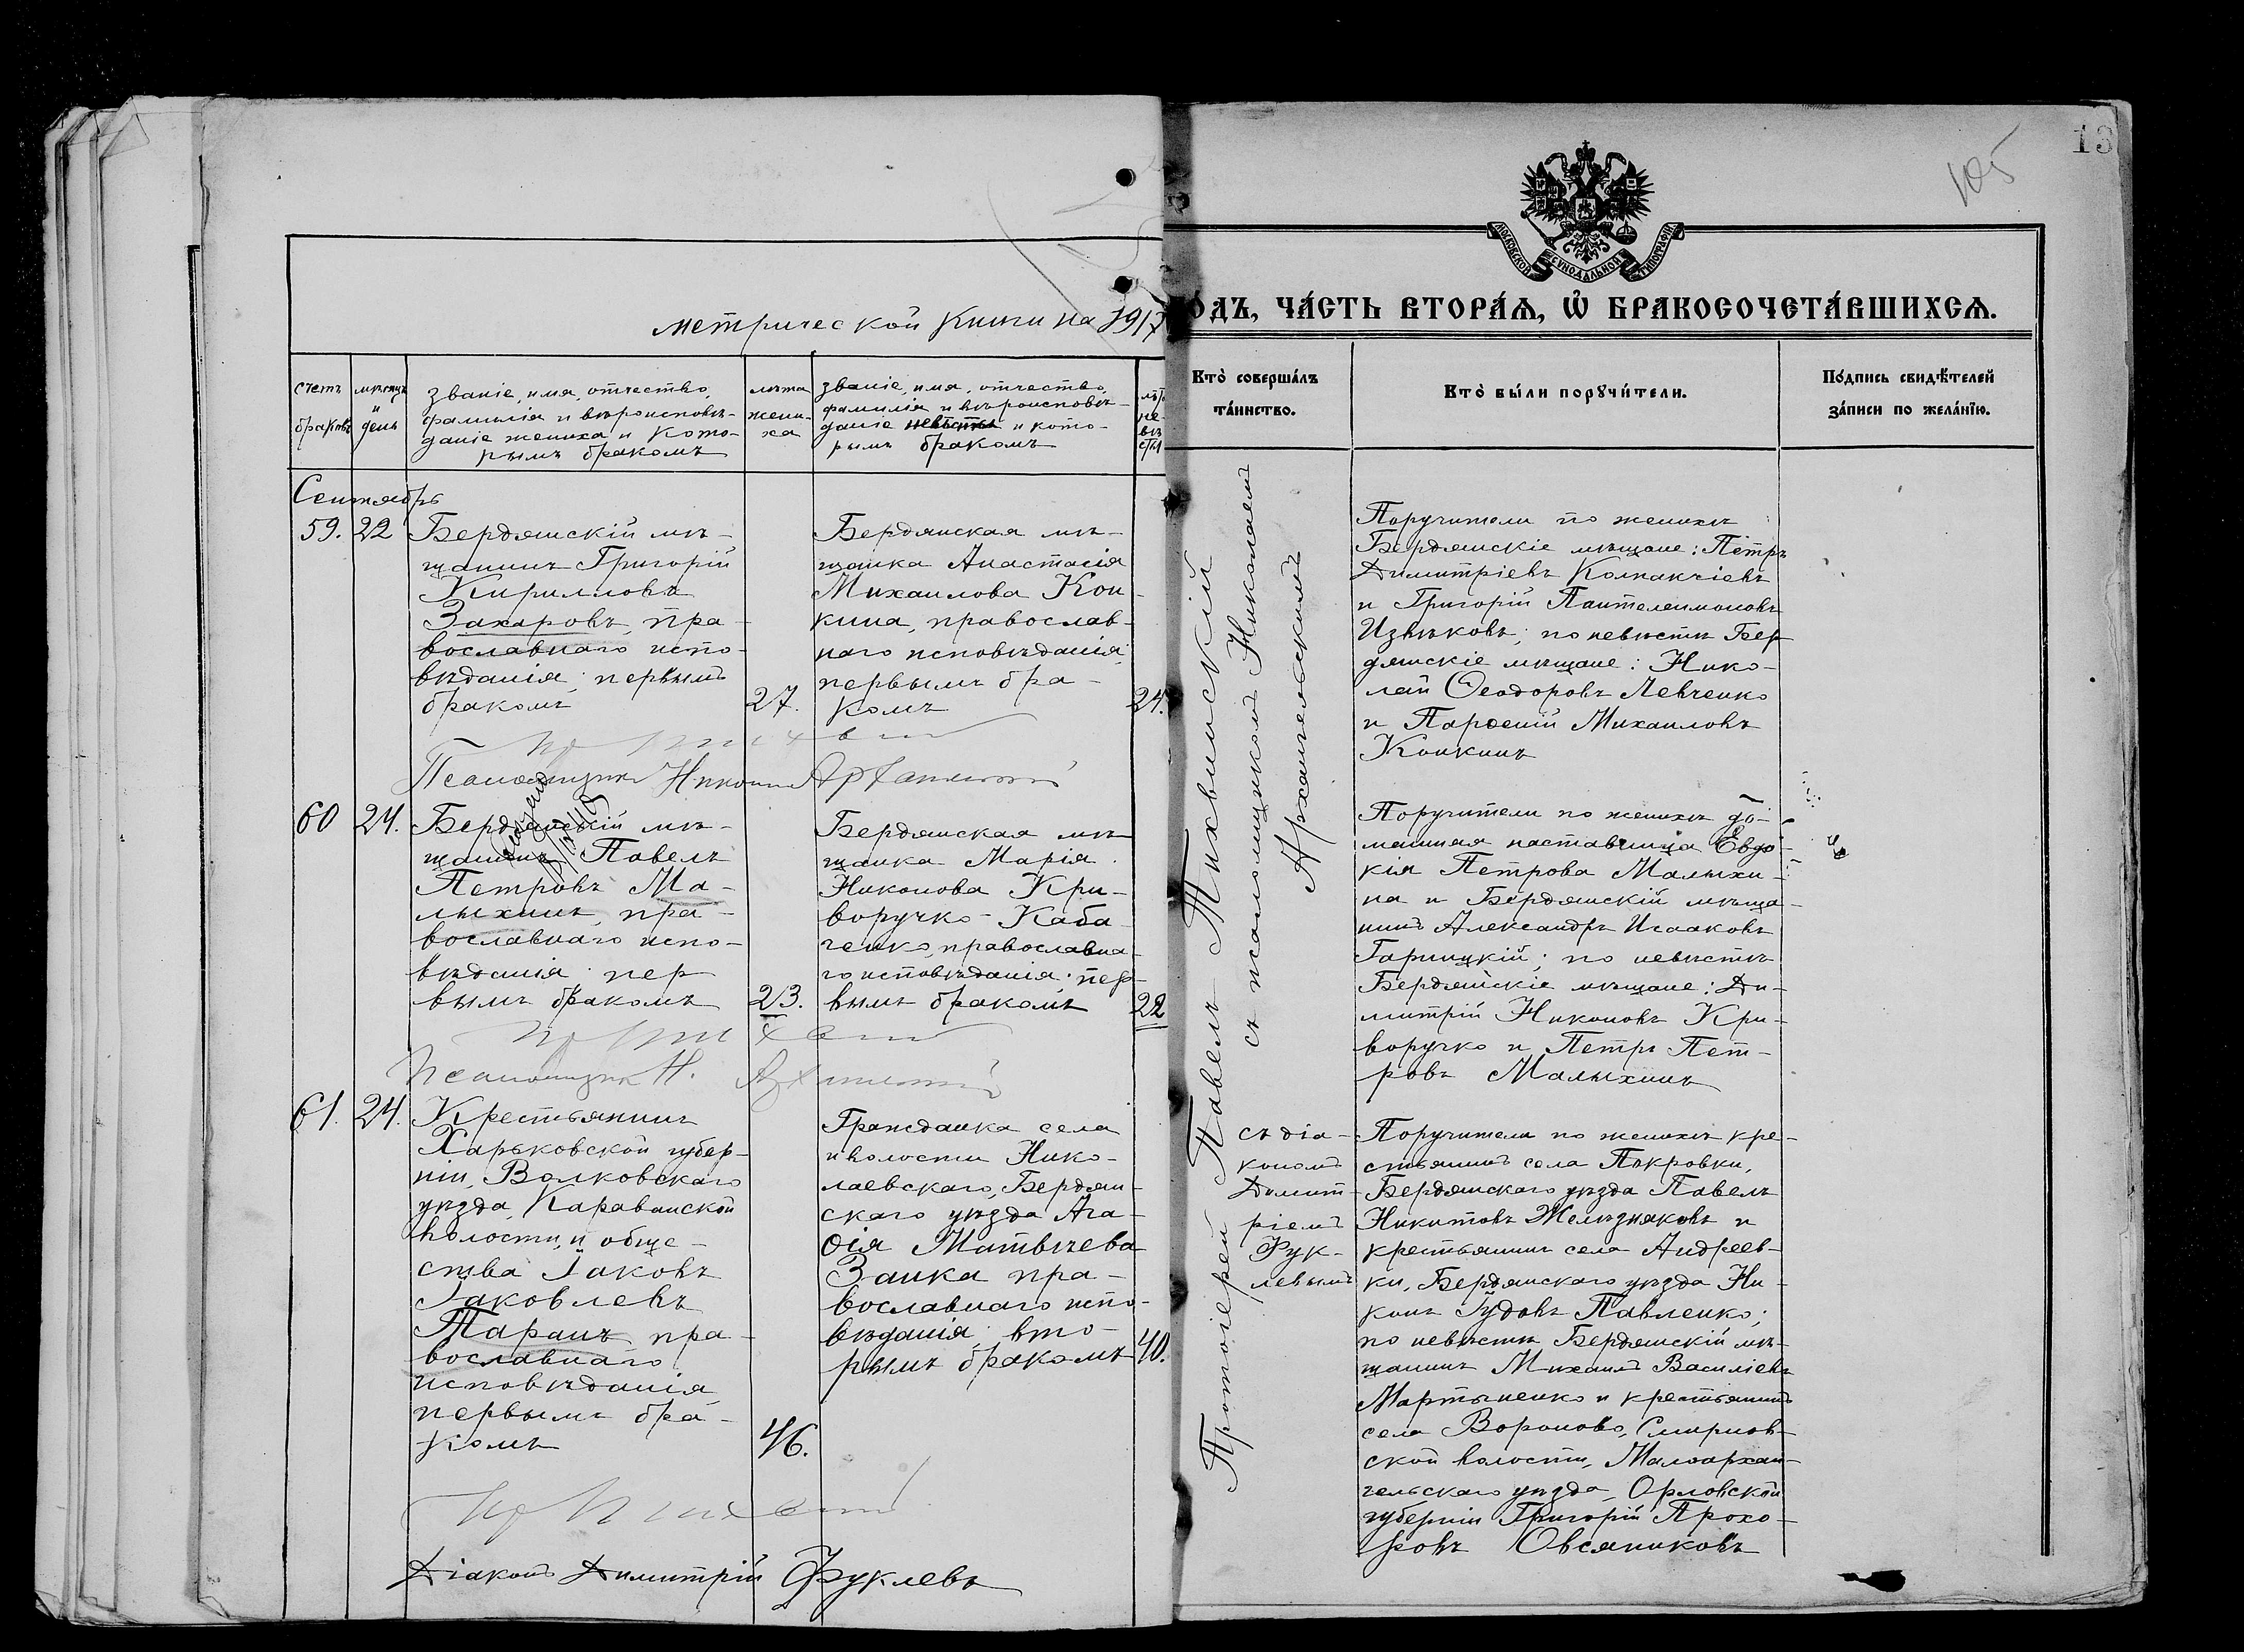 13
105
МОСКОВСКОЙ СУНОДАЛЬНОЙ ТИПОГРАФІИ
метрической книги на 1917
О́ДЪ, ЧА́СТЬ ВТОРА́Ѧ, Ѽ БРАКОСОЧЕТА́ВШИХСѦ.
счетъ
браковъ
мѣсяцъ
и
день
званіе, имя, отчество,
фамилія и вѣроисповѣ-
даніе жениха и кото-
рымъ бракомъ
лѣта
жени-
ха
званіе, имя, отчество,
фамилія и вѣроисповѣ-
даніе невѣсты и кото-
рымъ бракомъ
лѣт
не-
вѣ
сты
Кто̀ соверша́лъ
та́инство.
Кто̀ бы́ли порꙋчи́тели.
По́дпись свидѣ́телей
за́писи по жела́нїю.
Сентябрь
59.
22
Бердянскій мѣ-
щанинъ Григорій
Кирилловъ
Захаровъ, пра-
вославнаго испо-
вѣданія; первымъ
бракомъ
27.
Бердянская мѣ-
щанка Анастасія
Михаилова Кон-
кина, православ-
наго исповѣданія,
первымъ бра-
комъ
24.
Псаломщикъ Николай Архангельскій
Поручители по женихѣ
Бердянскіе мѣщане: Петръ
Димитріевъ Колпакчіевъ
и Григорій Пантелеимоновъ
Извѣковъ; по невѣстѣ Бер
дянскіе мѣщане: Нико-
лай Ѳеодоровъ Левченко
и Парѳеній Михаиловъ
Конкинъ
60
24.
Бердянскій мѣ-
щанинъ Павелъ
Петровъ Ма-
лыхинъ, пра-
вославнаго испо-
вѣданія; пер
вымъ бракомъ
23.
Бердянская мѣ
щанка Марія
Никонова Кри-
воручко-Каба
ченко, православна-
го исповѣданія; пер-
вымъ бракомъ
22
Псаломщикъ Н. Архангельскій
Поручители по женихѣ до-
машняя наставница Евдо-
кія Петрова Малыхи-
на и Бердянскій мѣща-
нинъ Александръ Исааковъ
Гарницкій; по невѣстѣ
Бердянскіе мѣщане: Ди-
митрій Никоновъ Кри-
воручко и Петръ Пет-
ровъ Малыхинъ
61.
24.
Крестьянинъ
Харьковской губер-
ніи, Валковскаго
уѣзда, Караванской
волости, и обще-
ства Іаковъ
Іаковлевъ
Таранъ пра-
вославнаго
исповѣданія
первымъ бра-
комъ
46.
Гражданка села
и волости Нико-
лаевскаго, Бердян-
скаго уѣзда Ага-
ѳія Матвѣева
Заика пра-
вославнаго испо-
вѣданія; вто-
рымъ бракомъ
40.
Діаконъ Димитрій Фуклевъ
Протоіерей Павелъ Тихвинскій
съ псаломщикомъ Николаемъ
Архангельскимъ
съ діа-
кономъ
Димит-
ріемъ
Фук-
левымъ
Поручители по женихѣ кре-
стьянинъ села Покровки,
Бердянскаго уѣзда Павелъ
Никитовъ Желѣзняковъ и
крестьянинъ села Андреев-
ки, Бердянскаго уѣзда Ни-
конъ Іудовъ Павленко;
по невѣстѣ Бердянскій мѣ-
щанинъ Михаилъ Василіевъ
Мартыненко и крестьянинъ
села Вороново, Смирнов-
ской волости, Малоархан-
гельскаго уѣзда, Орловской
губерніи Григорій Прохо-
ровъ Овсяниковъ